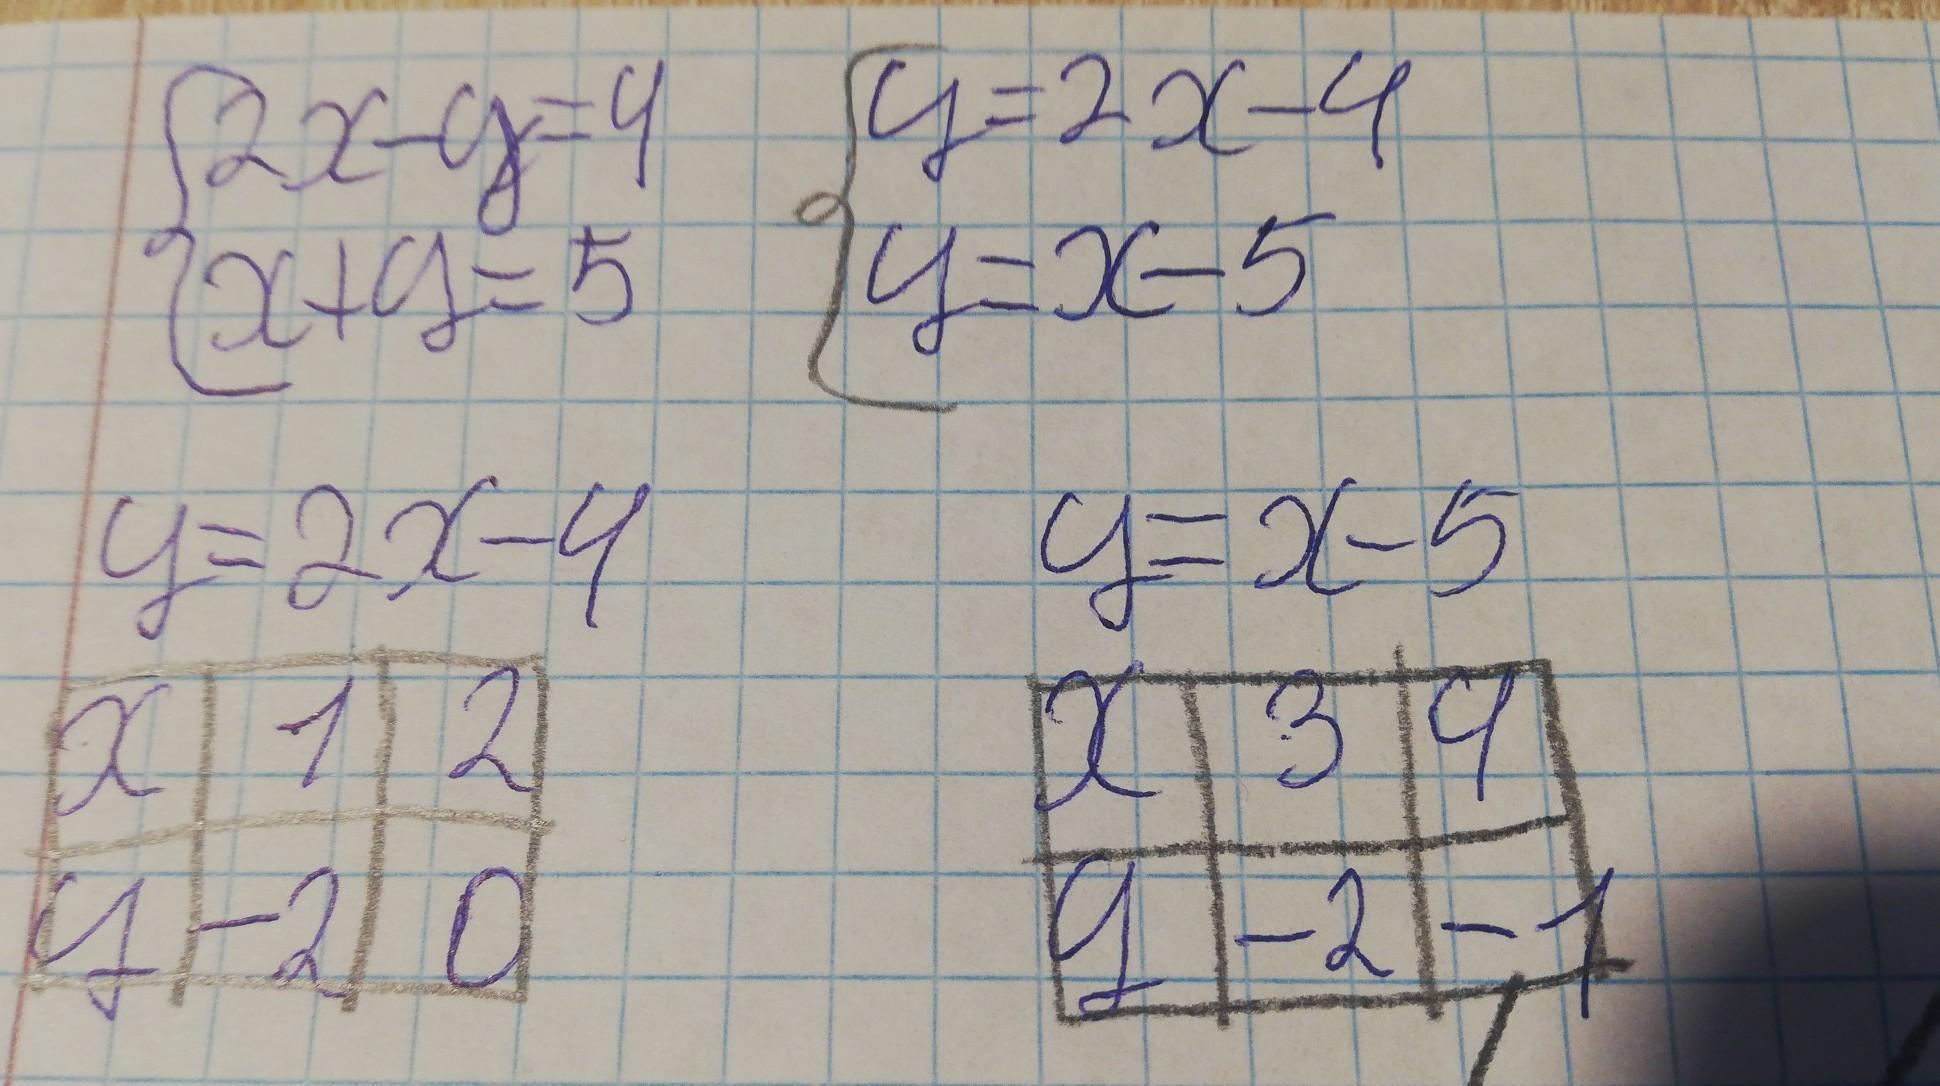 2x-y=4
x+y=5
y=2x-4
y=x-5
y=2x-4
x 1 2
y -2 0
y=x-5
x 3 4
y -2 -1